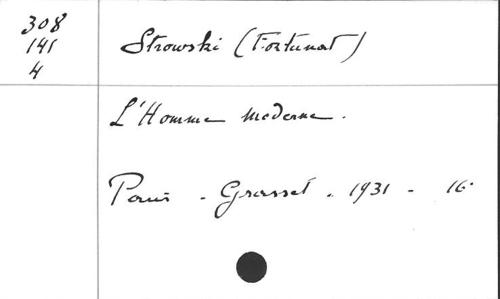 308
141
4
Strowski (Fortunat)
L'Homme moderne.
Paris - Grasset - 1931 - 16°